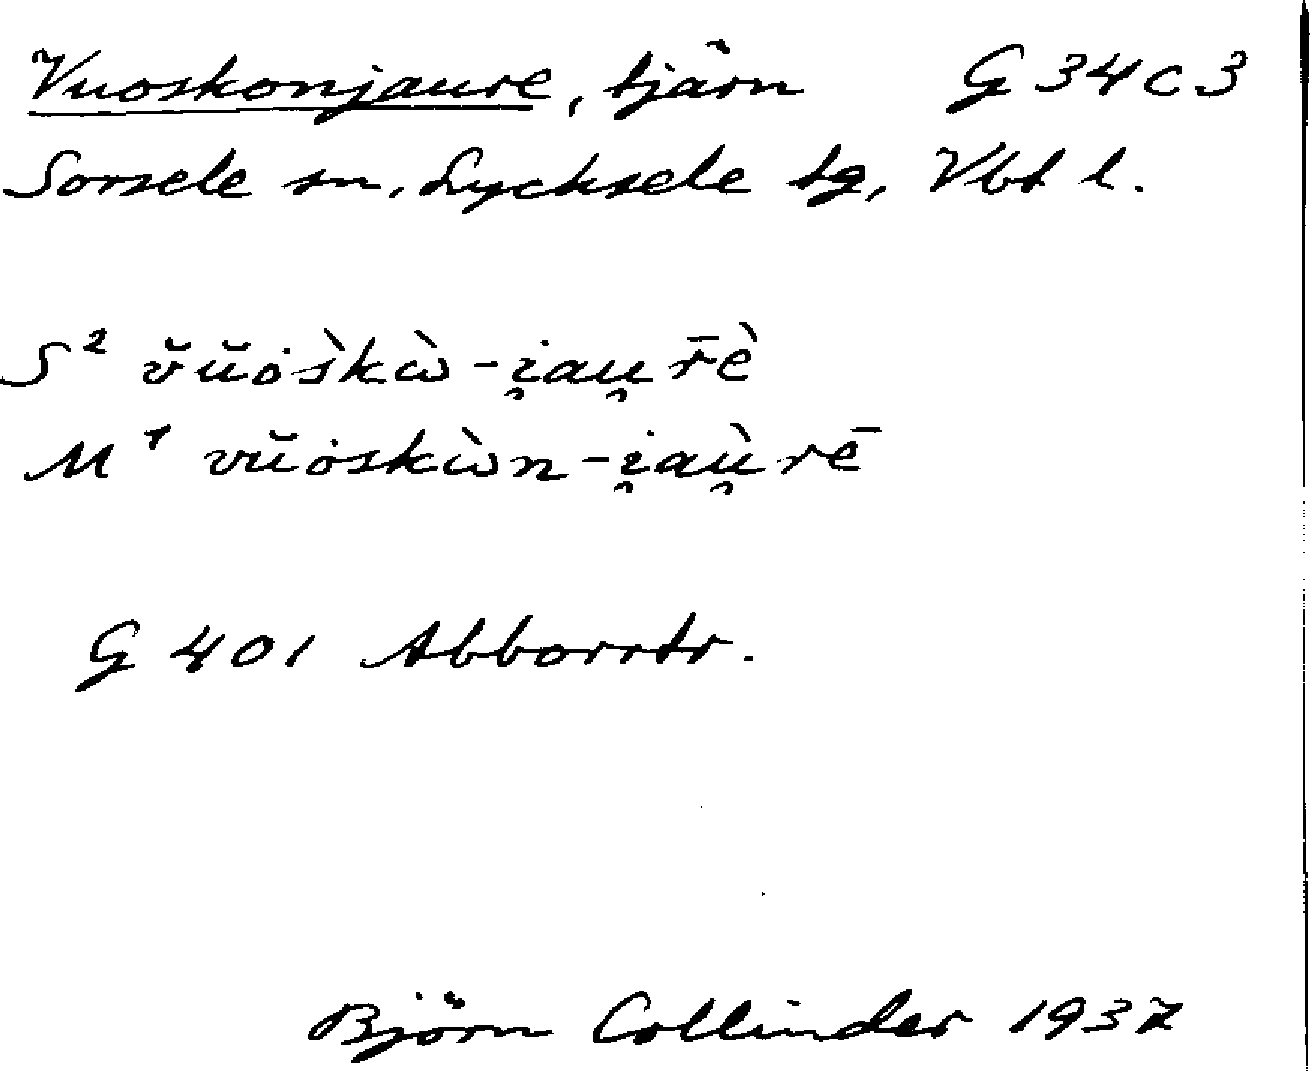 Vuoskonjaure, tjärn G 34 c 3
Sorsele sn, Lycksele tg, Vbt l.
S² v̆ŭȯs̀kὼ-i̯au̯r̄è
M¹ vŭȯskὼn-i̯aù̯rē
G 401 Abborrtr.
Björn Collinder 1937